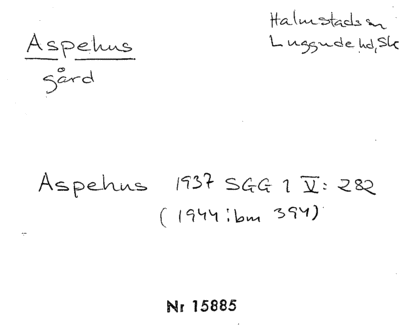 Aspehus
gård
Halmstads sn
Luggude hd, Sk
Aspehus 1937 SGG 1 V: 282
(1944 ibm 394)
Nr 15885